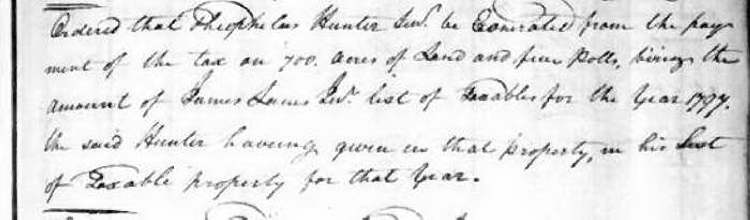 Ordered that Theophelus Hunter Junr. be Exonirated from the pay
ment of the tax on 700. acres of Land and five Polls, being the
amount of James Lanes Junr. list of Taxables for the Year 1797.
the said Hunter having given in that property, in his List
of Taxable property for that Year.